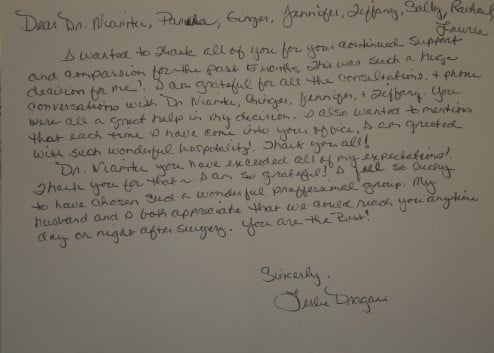 Dear Dr. Niamtu, Pamela, Ginger, Jennifer, Tiffany, Sally, Rachael
Laurie
I wanted to thank all of you for your continued support
and compassion for the past 5 months. This was such a huge
decision for me! I am grateful for all the consultations, + phone
conversations with Dr. Niamtu, Ginger, Jennifer, + Tiffany. You
were all a great help in my decision. I also wanted to mention
that each time I have come into your office, I am greeted
with such wonderful hospitality! Thank you all!
Dr. Niamtu you have exceeded all of my expectations!
Thank you for that ~ I am so grateful! I feel so lucky
to have chosen such a wonderful proffessional group. My
husband and I both appreciate that we could reach you anytime
day or night after surgery. You are the Best!
Sincerly,
Leslie